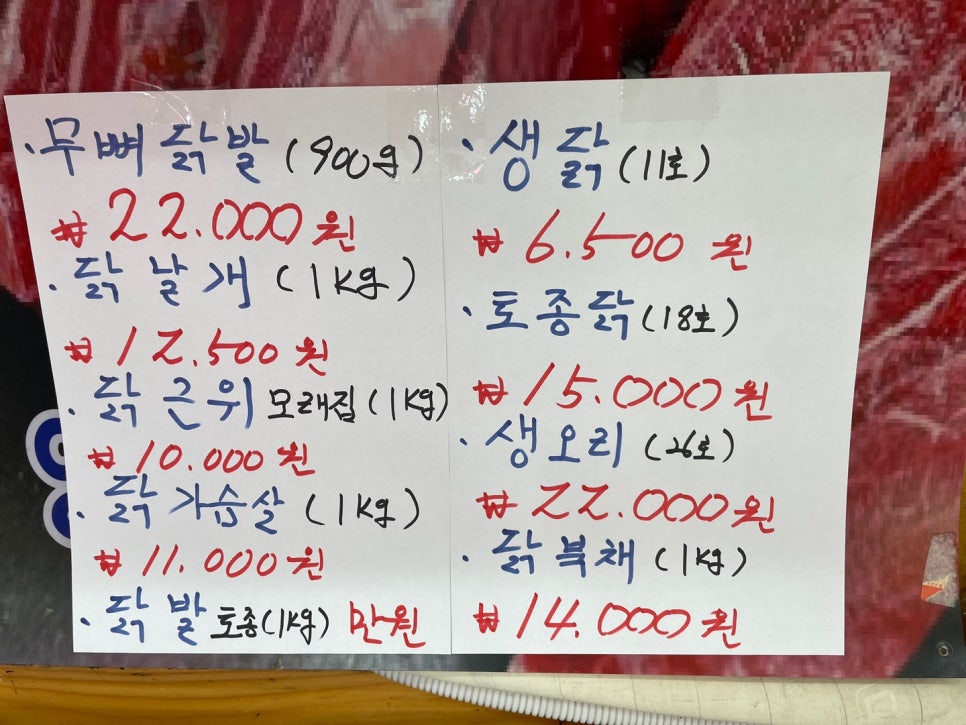 · 무뼈닭발 (900g)
₩ 22.000원
· 닭날개 (1kg)
₩ 12.500원
· 닭근위 모래집 (1kg)
₩ 10.000원
· 닭가슴살 (1kg)
₩ 11.000원
· 닭발 토종(1kg) 만원
· 생닭 (11호)
₩ 6.500 원
· 토종닭 (18호)
₩ 15.000원
· 생오리 (26호)
₩ 22.000원
· 닭북채 (1kg)
₩ 14.000원